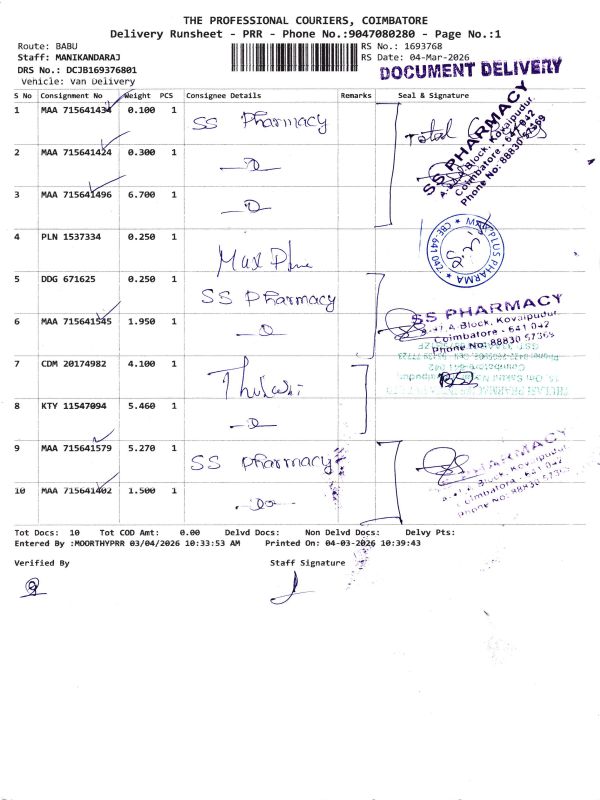 THE PROFESSIONAL COURIERS, COIMBATORE
Delivery Runsheet - PRR - Phone No.:9047080280 - Page No.:1
Route: BABU
RS No.: 1693768
Staff: MANIKANDARAJ
RS Date: 04-Mar-2026
DRS No.: DCJB169376801
DOCUMENT DELIVERY
Vehicle: Van Delivery
S No Consignment No Weight PCS Consignee Details Remarks Seal & Signature
1 MAA 715641434 0.100 1 SS Pharmacy Total
SS PHARMACY
A-Block, Kovaipudur,
Coimbatore - 641 042
Phone No: 88830 57369
2 MAA 715641424 0.300 1 -D-
3 MAA 715641496 6.700 1 -D-
4 PLN 1537334 0.250 1 Max Plus
MAX PLUS PHARMA
CBE-641 042
5 DDG 671625 0.250 1 SS Pharmacy
6 MAA 715641545 1.950 1 -D-
SS PHARMACY
A-Block, Kovaipudur,
Coimbatore - 641 042
Phone No: 88830 57369
7 CDM 20174982 4.100 1 Thulasi
8 KTY 11547094 5.460 1 -D-
9 MAA 715641579 5.270 1 SS Pharmacy
PHARMACY
A-Block, Kovaipudur,
Coimbatore - 641 042
Phone No: 88830 57369
10 MAA 715641402 1.500 1 -Do-
Tot Docs: 10 Tot COD Amt: 0.00 Delvd Docs: Non Delvd Docs: Delvy Pts:
Entered By :MOORTHYPRR 03/04/2026 10:33:53 AM Printed On: 04-03-2026 10:39:43
Verified By Staff Signature